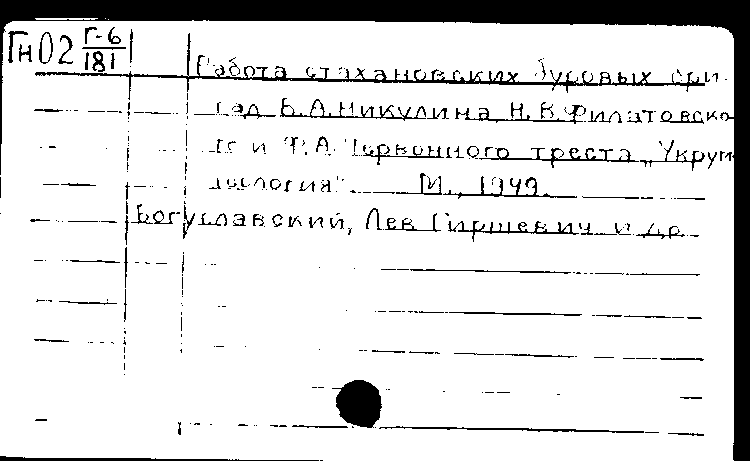 Гн02 Г-6/181
Работа стахановских буровых бри-
гад Б.А.Никулина Н.В.Филатовско-
го и Ф.А. Червонного треста „Укруг-
легеология". М., 1949.
Богуславский, Лев Гиршевич и др.